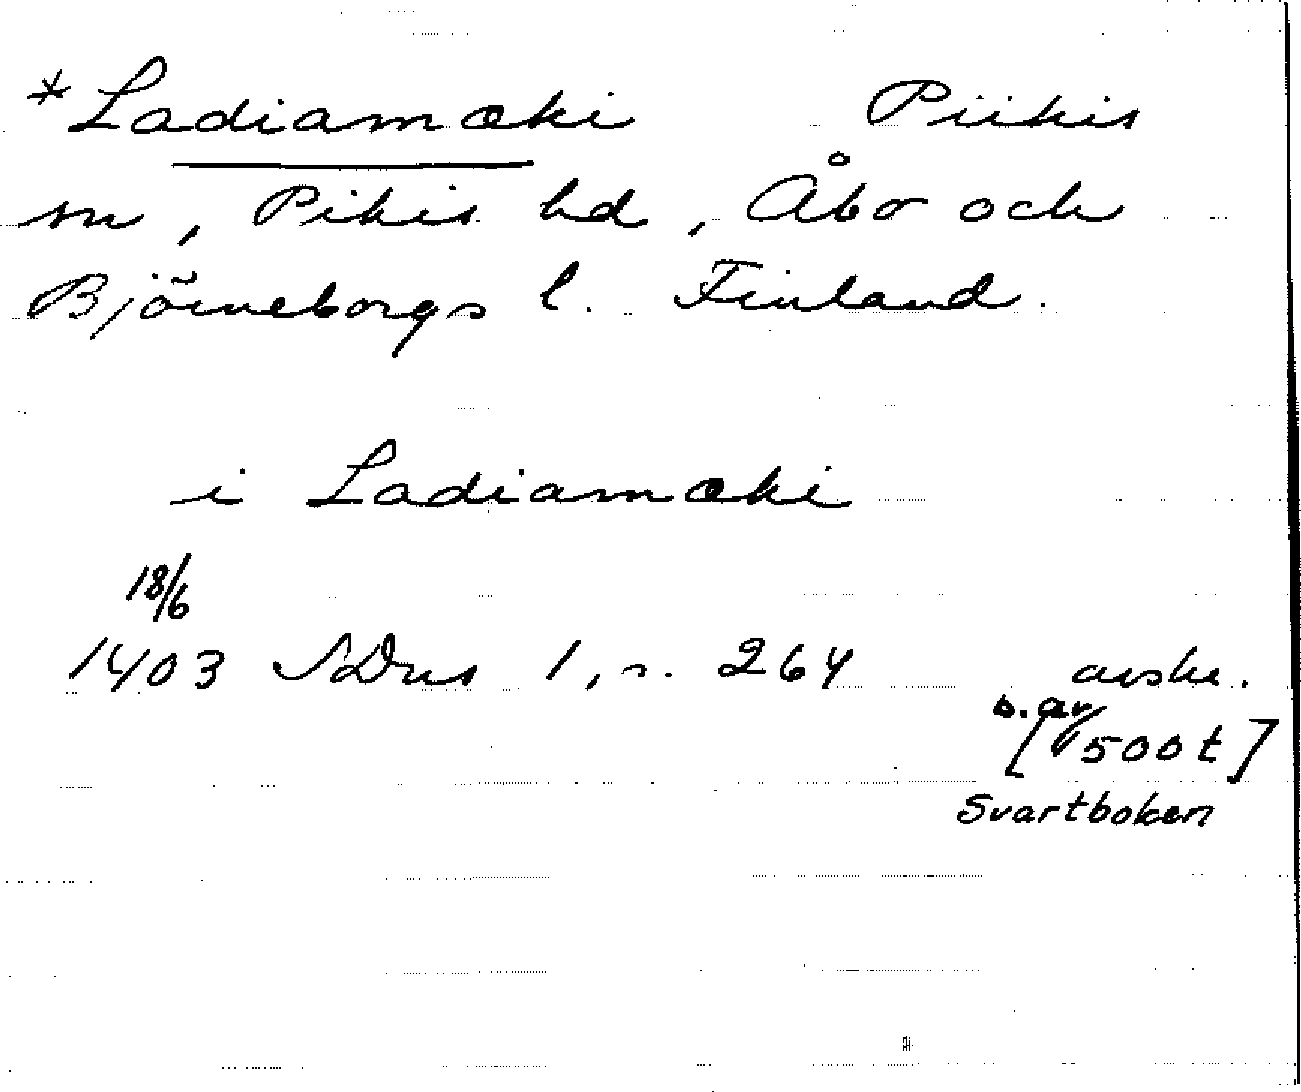 *Ladiamæki Piikis
sn, Pikis hd, Åbo och
Björneborgs l. Finland.
i Ladiamæki
18/6
1403 SDns 1, s. 264 avskr.
[b. av 1500t]
Svartboken